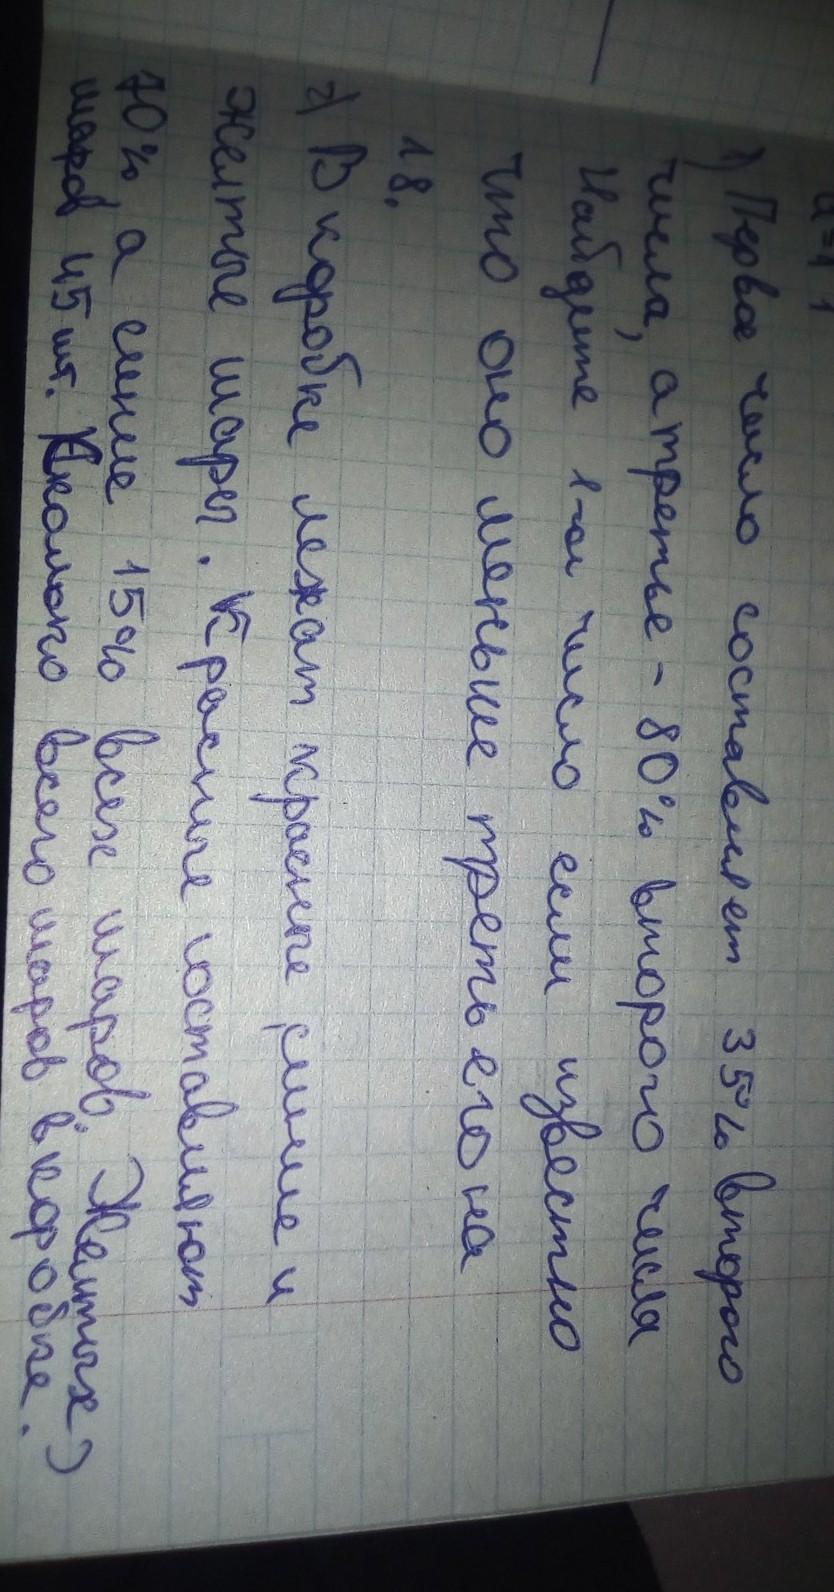 1) Первое число составляет 35% второго
числа, а третье - 80% второго числа
Найдите 1-ое число если известно
что оно меньше третьего на
18.
2) В коробке лежат красные, синие и
желтые шары. Красные составляют
70% а синие 15% всех шаров. Желтых
шаров 45 шт. Сколько всего шаров в коробке.